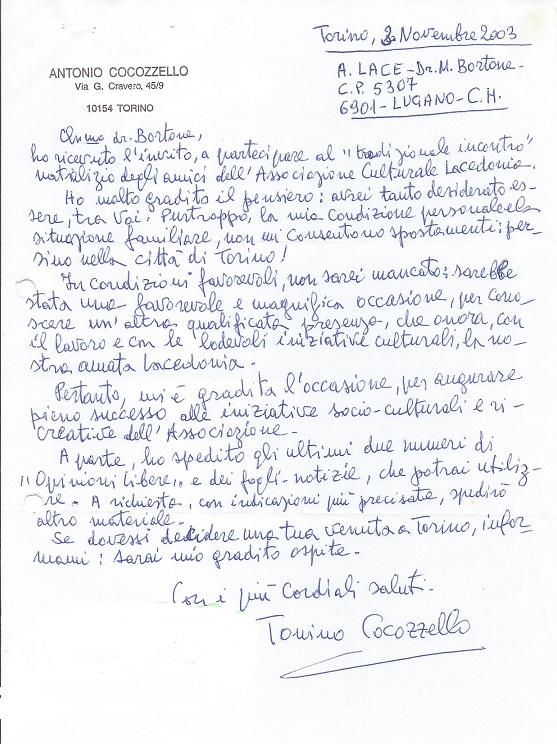 Torino, 2 Novembre 2003
ANTONIO COCOZZELLO
Via G. Cravero, 45/9
10154 TORINO
A. LACE - Dr. M. Bortone -
C.P. 5307
6901 - LUGANO - C.H.
dr. Bortone,
ho ricevuto l'invito, a partecipare al "tradizionale incontro"
natalizio degli amici dell'Associazione Culturale Lacedonia.
Ho molto gradito il pensiero: avrei tanto desiderato es-
sere, tra Voi. Purtroppo, la mia condizione personale e la
situazione familiare, non mi consentono spostamenti: per-
sino nella città di Torino!
In condizioni favorevoli, non sarei mancato: sarebbe
stata una favorevole e magnifica occasione, per cono-
scere un'altra qualificata presenza, che onora, con
il lavoro e con le lodevoli iniziative culturali, la no-
stra amata Lacedonia.
Pertanto, mi è gradita l'occasione, per augurare
pieno successo alle iniziative socio-culturali e ri-
creative dell'Associazione.
A parte, ho spedito gli ultimi due numeri di
"Opinioni Libere" e dei fogli-notizie, che potrai utiliz-
re. A richiesta, con indicazioni più precisate, spedirò
altro materiale.
Se dovessi decidere una tua venuta a Torino, infor-
mami: sarai mio gradito ospite.
Con i più cordiali saluti.
Tonino Cocozzello